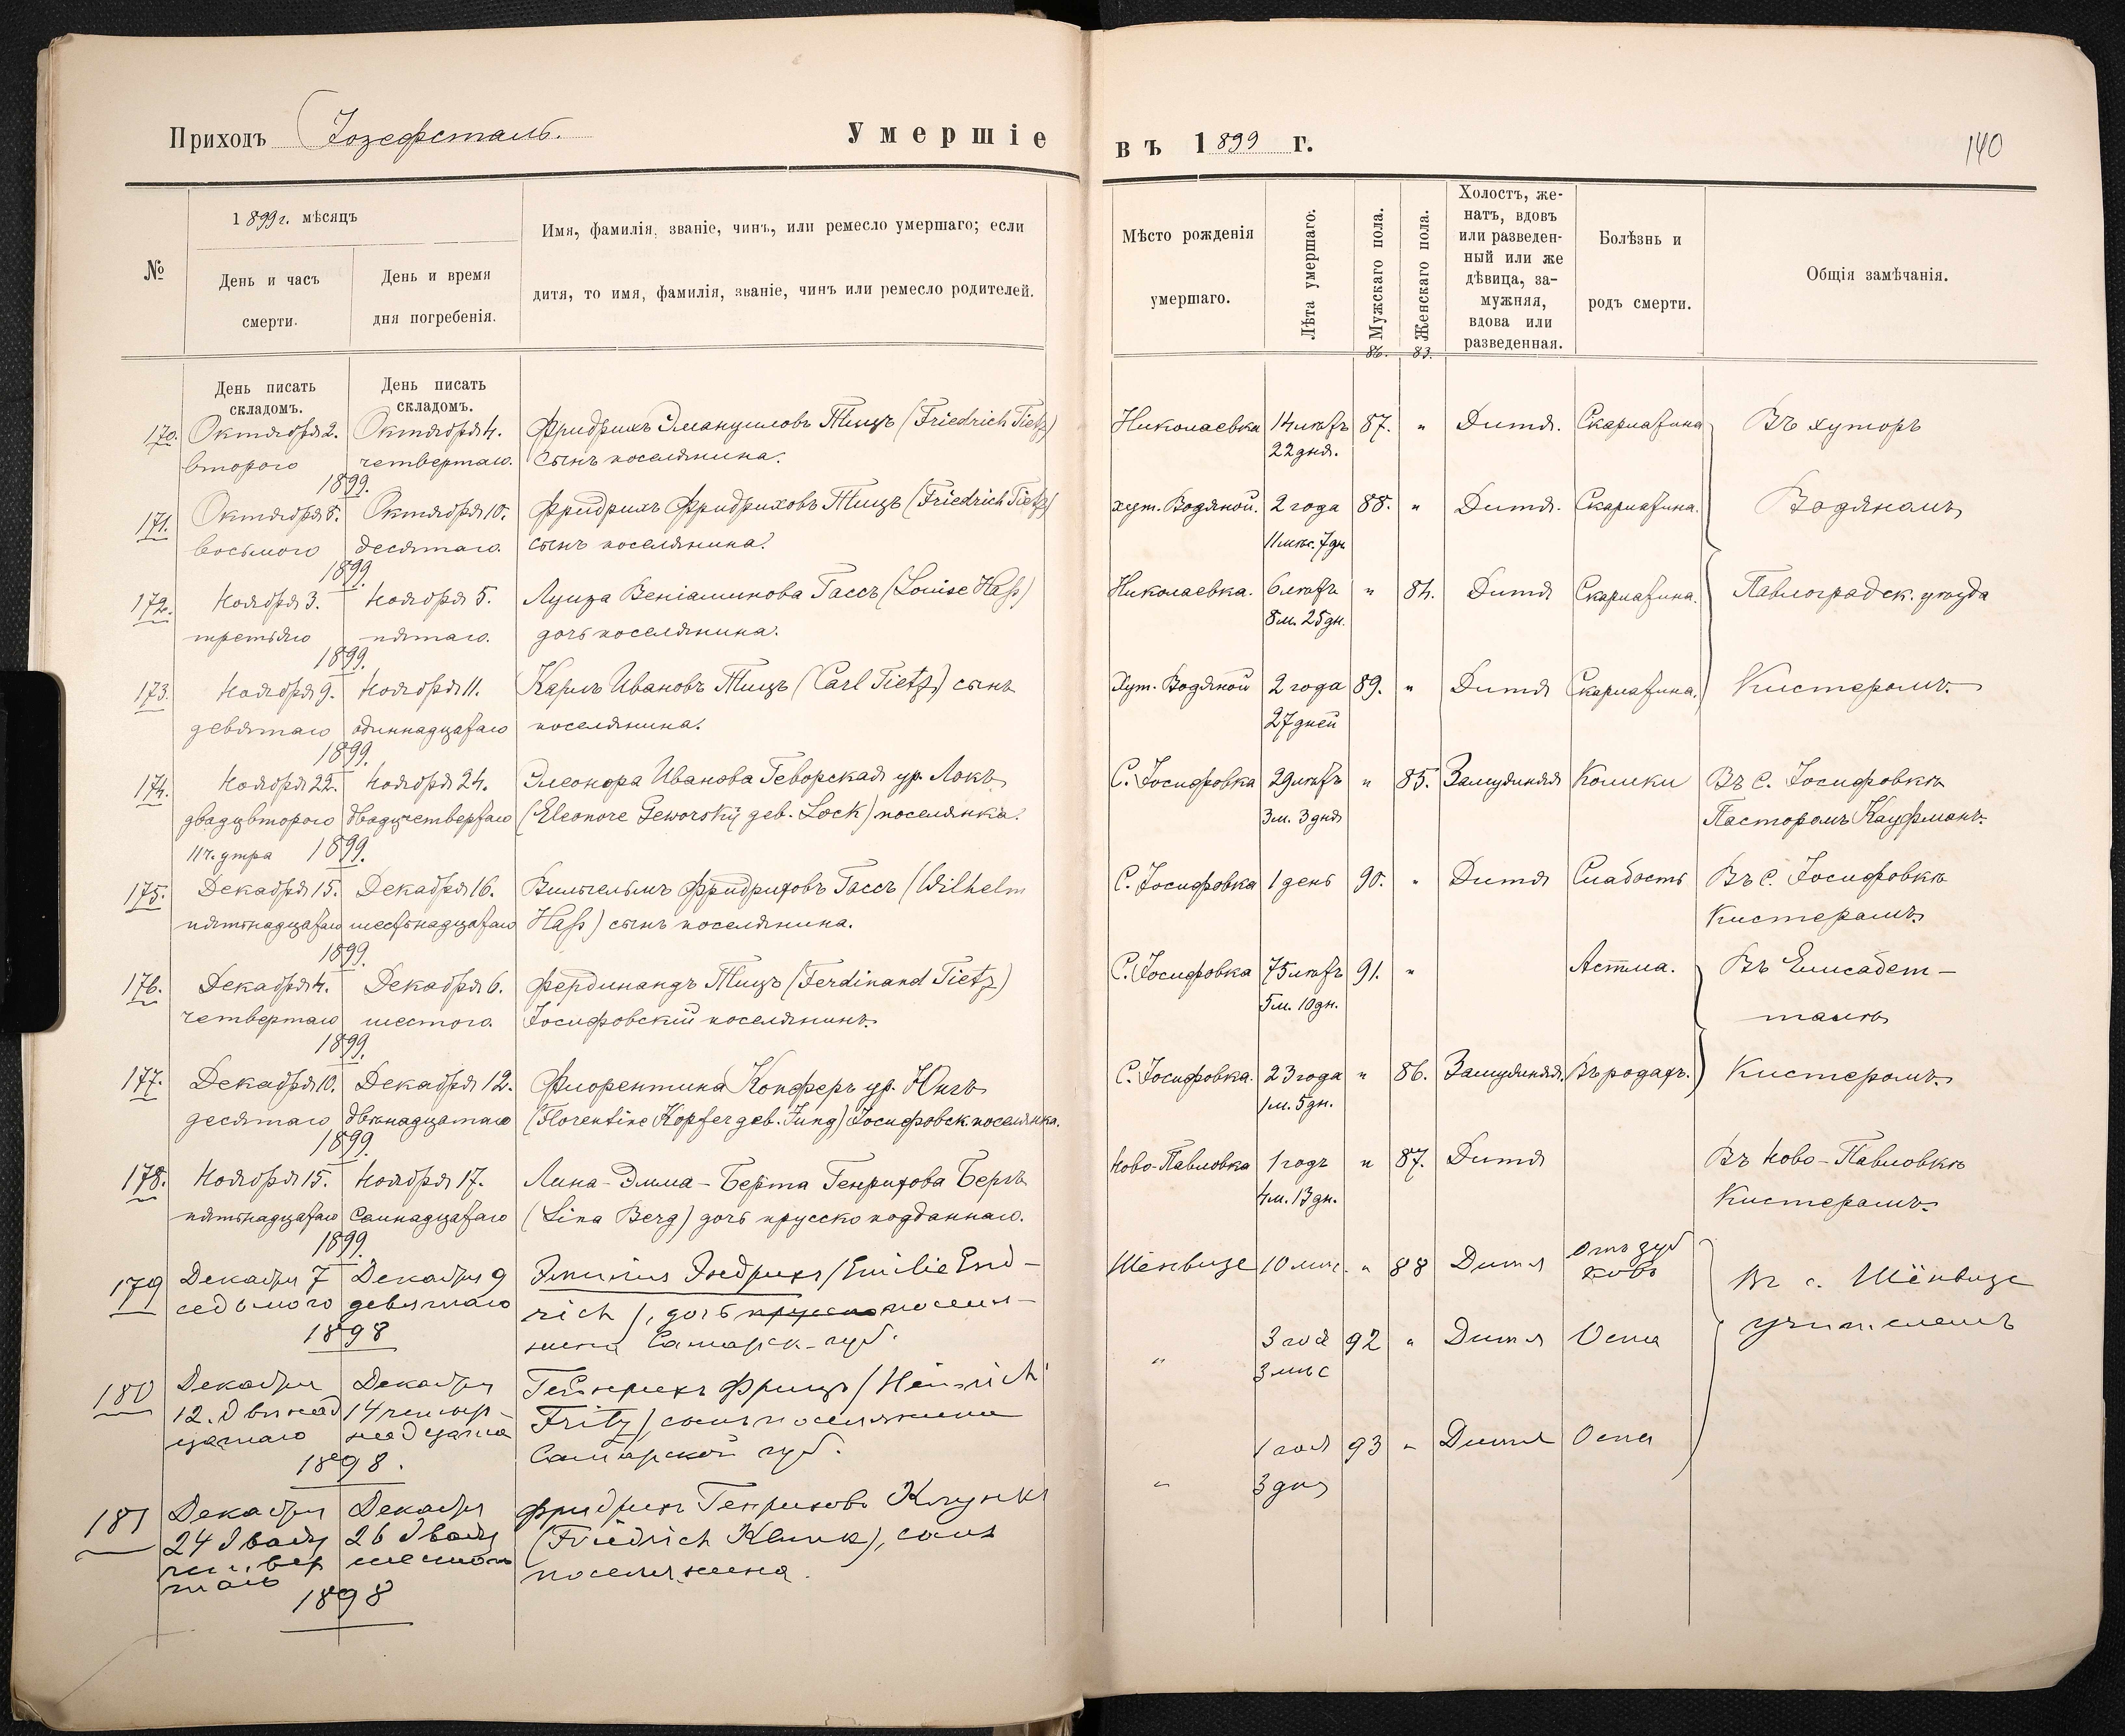 Приходъ Іозефсталь. Умершіе
въ 1899 г.
140
№
1899 г. мѣсяцъ
День и часъ
смерти.
День и время
дня погребенія.
Имя, фамилія, званіе, чинъ, или ремесло умершаго; если
дитя, то имя, фамилія, званіе, чинъ или ремесло родителей.
Мѣсто рожденія
умершаго.
Лѣта умершаго.
Мужскаго пола.
Женскаго пола.
Холостъ, же-
натъ, вдовъ
или разведен-
ный или же
дѣвица, за-
мужняя,
вдова или
разведенная.
Болѣзнь и
родъ смерти.
Общія замѣчанія.
86. 83.
День писать складомъ.
День писать складомъ.
170. Октября 2. Октября 4. Фридрихъ Эмануиловъ Тицъ (Friedrich Tietz) Николаевка 14 лѣтъ 87. " Дитя. Скарлатина Въ хуторѣ
второго четвертаго. сынъ поселянина. 22 дня.
1899.
171. Октября 8. Октября 10. Фридрихъ Фридриховъ Тицъ (Friedrich Tietz) хут. Водяной. 2 года 88. " Дитя. Скарлатина. Водяномъ
восьмого десятаго. сынъ поселянина. 11 мѣс. 7 дн.
1899.
172. Ноября 3. Ноября 5. Луиза Веніаминова Гассъ (Louise Haß) Николаевка. 6 лѣтъ " 84. Дитя Скарлатина. Павлоградск. уѣзда
третьяго пятаго. дочь поселянина. 8 м. 25 дн.
1899.
173. Ноября 9. Ноября 11. Карлъ Ивановъ Тицъ (Carl Tietz) сынъ Хут. Водяной 2 года 89. " Дитя Скарлатина. Кистеромъ.
девятаго одиннадцатаго поселянина. 27 дней
1899.
174. Ноября 22. Ноября 24. Элеонора Иванова Геворская ур. Локъ С. Іосифовка 29 лѣтъ " 85. Замужняя Колики Въ с. Іосифовкѣ
двадцвторого двадцчетвертаго (Eleonore Geworsky geb. Lock) поселянка. 3 м. 3 дня Пасторомъ Кауфманъ.
11 ч. утра 1899.
175. Декабря 15. Декабря 16. Вильгельмъ Фридриховъ Гассъ (Wilhelm С. Іосифовка 1 день 90. " Дитя Слабость Въ с. Іосифовкѣ
пятьнадцатаго шестьнадцатаго Haß) сынъ поселянина. Кистеромъ
1899.
176. Декабря 4. Декабря 6. Фердинандъ Тицъ (Ferdinand Tietz) С. Іосифовка 75 лѣтъ 91. " Астма. Въ Елисабет-
четвертаго шестого. Іосифовскій поселянинъ. 5 м. 10 дн. талѣ
1899.
177. Декабря 10. Декабря 12. Флорентина Копферъ ур. Юнгъ С. Іосифовка. 23 года " 86. Замужняя. Въ родахъ. Кистеромъ.
десятаго двѣнадцатаго (Florentine Kopfer geb. Jung) Іосифовск. поселянка. 1 м. 5 дн.
1899.
178. Ноября 15. Ноября 17. Лина-Эмма-Берта Генрихова Бергъ Ново-Павловка 1 годъ " 87. Дитя Въ Ново-Павловкѣ
пятьнадцатаго Семнадцатаго (Lina Berg) дочь прусско подданнаго. 4 м. 13 дн. Кистеромъ.
1899.
179 Декабря 7 Декабря 9 Эмилія Эндрихъ (Emilie End- Шёнвизе 10 мѣс. " 88 Дитя Отъ зуб
седьмого девятаго rich), дочь прусско поселя- ковъ Въ с. Шёнвизе
1898 нина Самарск. губ. учителемъ
180 Декабря Декабря Гейнрихъ Фрицъ (Heinrich " 3 год 92 " Дитя Оспа
12. двѣнад 14 четыр- Fritz), сынъ поселянина 3 мѣс
цатаго надцата Самарской губ.
1898.
181 Декабря Декабря Фридрихъ Генриховъ Клункъ " 1 год 93 " Дитя Оспа
24 двадц 26 двадц (Friedrich Klunk), сынъ 3 дня
четвер шестого поселянина.
таго
1898